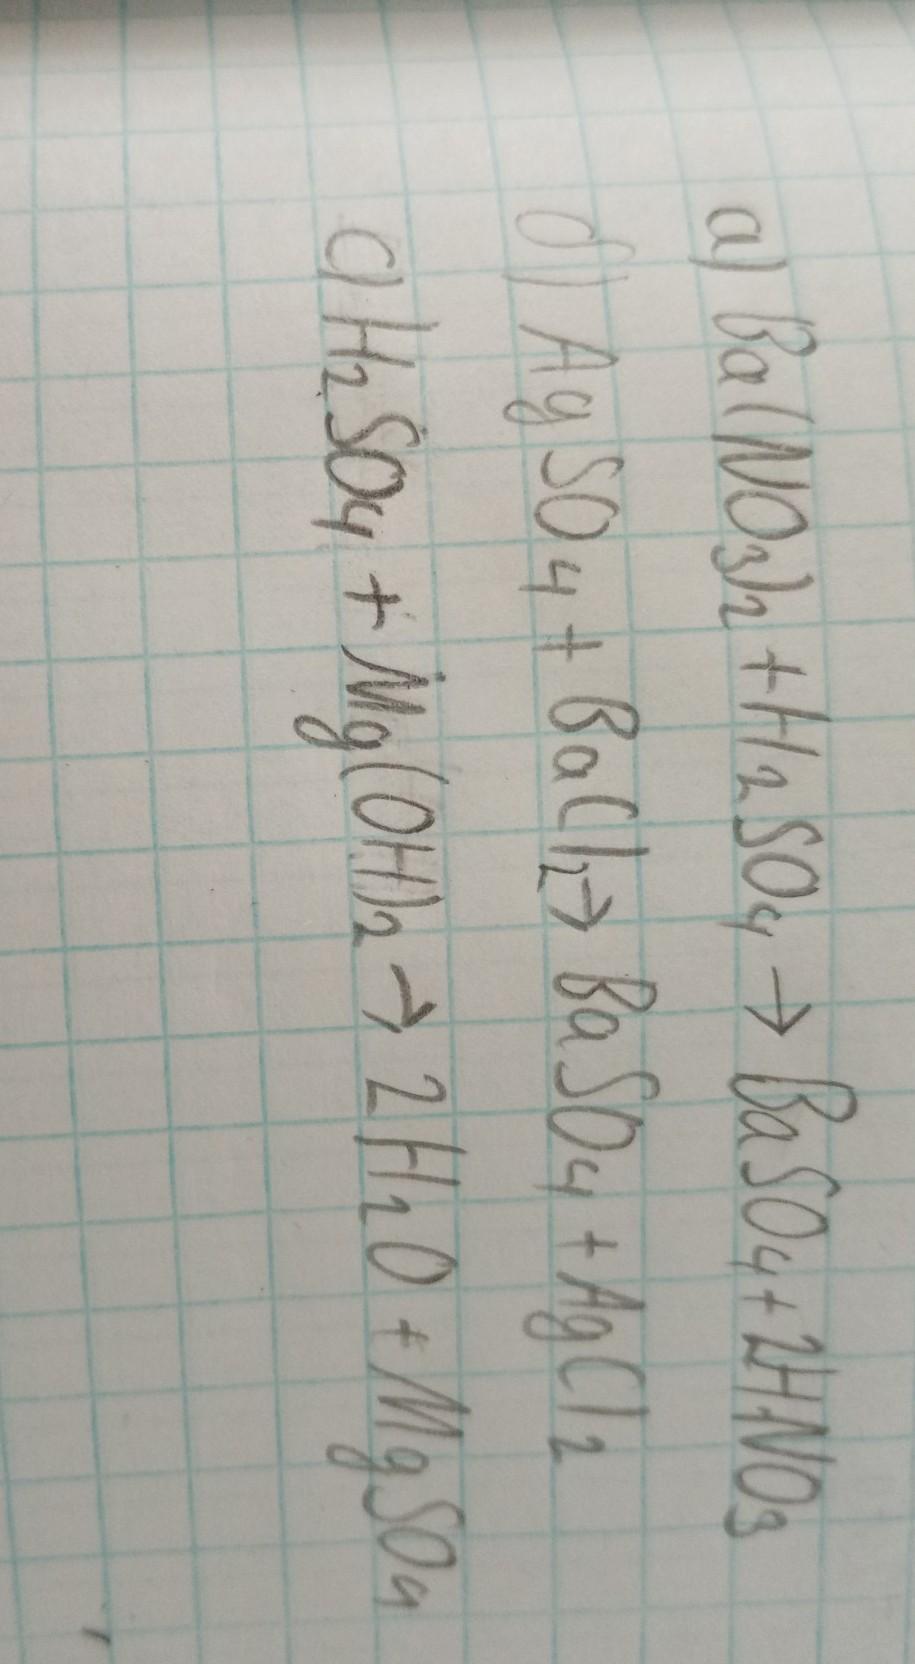 a) Ba(NO3)2 + H2SO4 → BaSO4 + 2HNO3
б) AgSO4 + BaCl2 → BaSO4 + AgCl2
c) H2SO4 + Mg(OH)2 → 2H2O + MgSO4